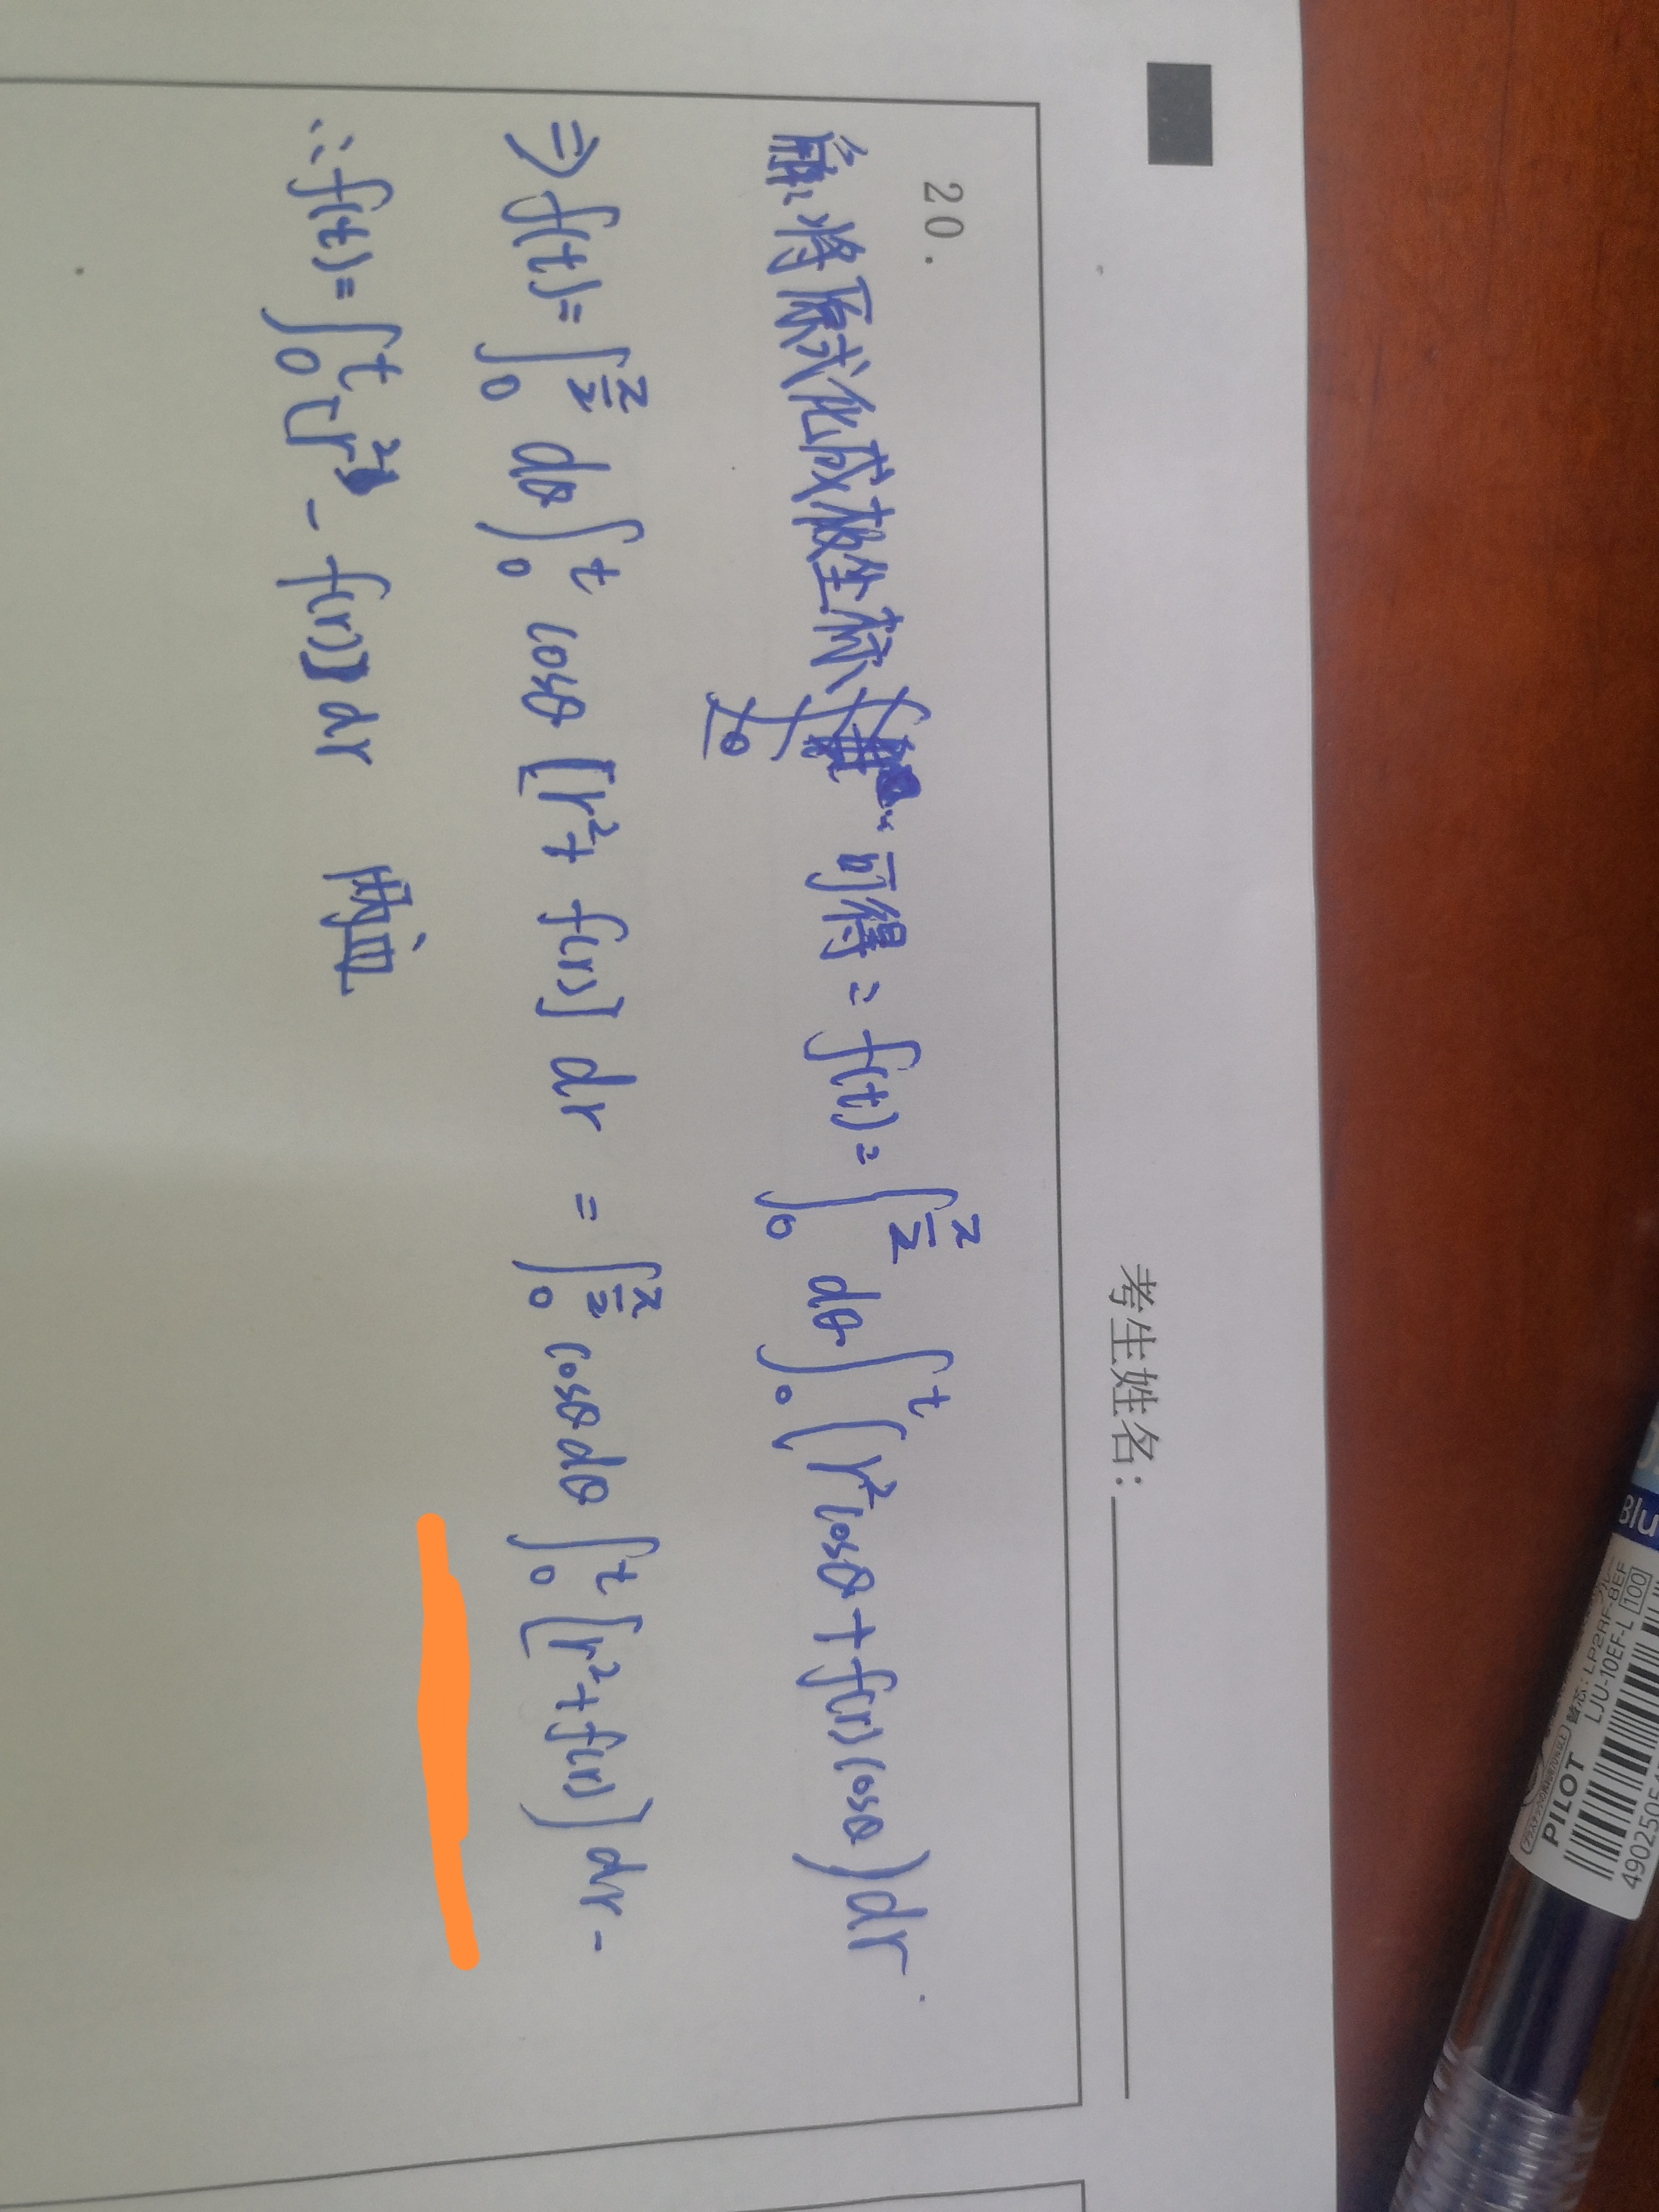 考生姓名:
20.
解:将原式化成极坐标 可得:f(t)=∫₀^(π/2) dθ∫₀^t (r²cosθ+f(r)cosθ)dr
⇒f(t)=∫₀^(π/2) dθ∫₀^t cosθ[r²+f(r)]dr=∫₀^(π/2) cosθdθ∫₀^t[r²+f(r)]dr-
∴f(t)=∫₀^t[r²-f(r)]dr 两边
Blu
LP2RF-8EF
LJU-10EF-L 100
PILOT